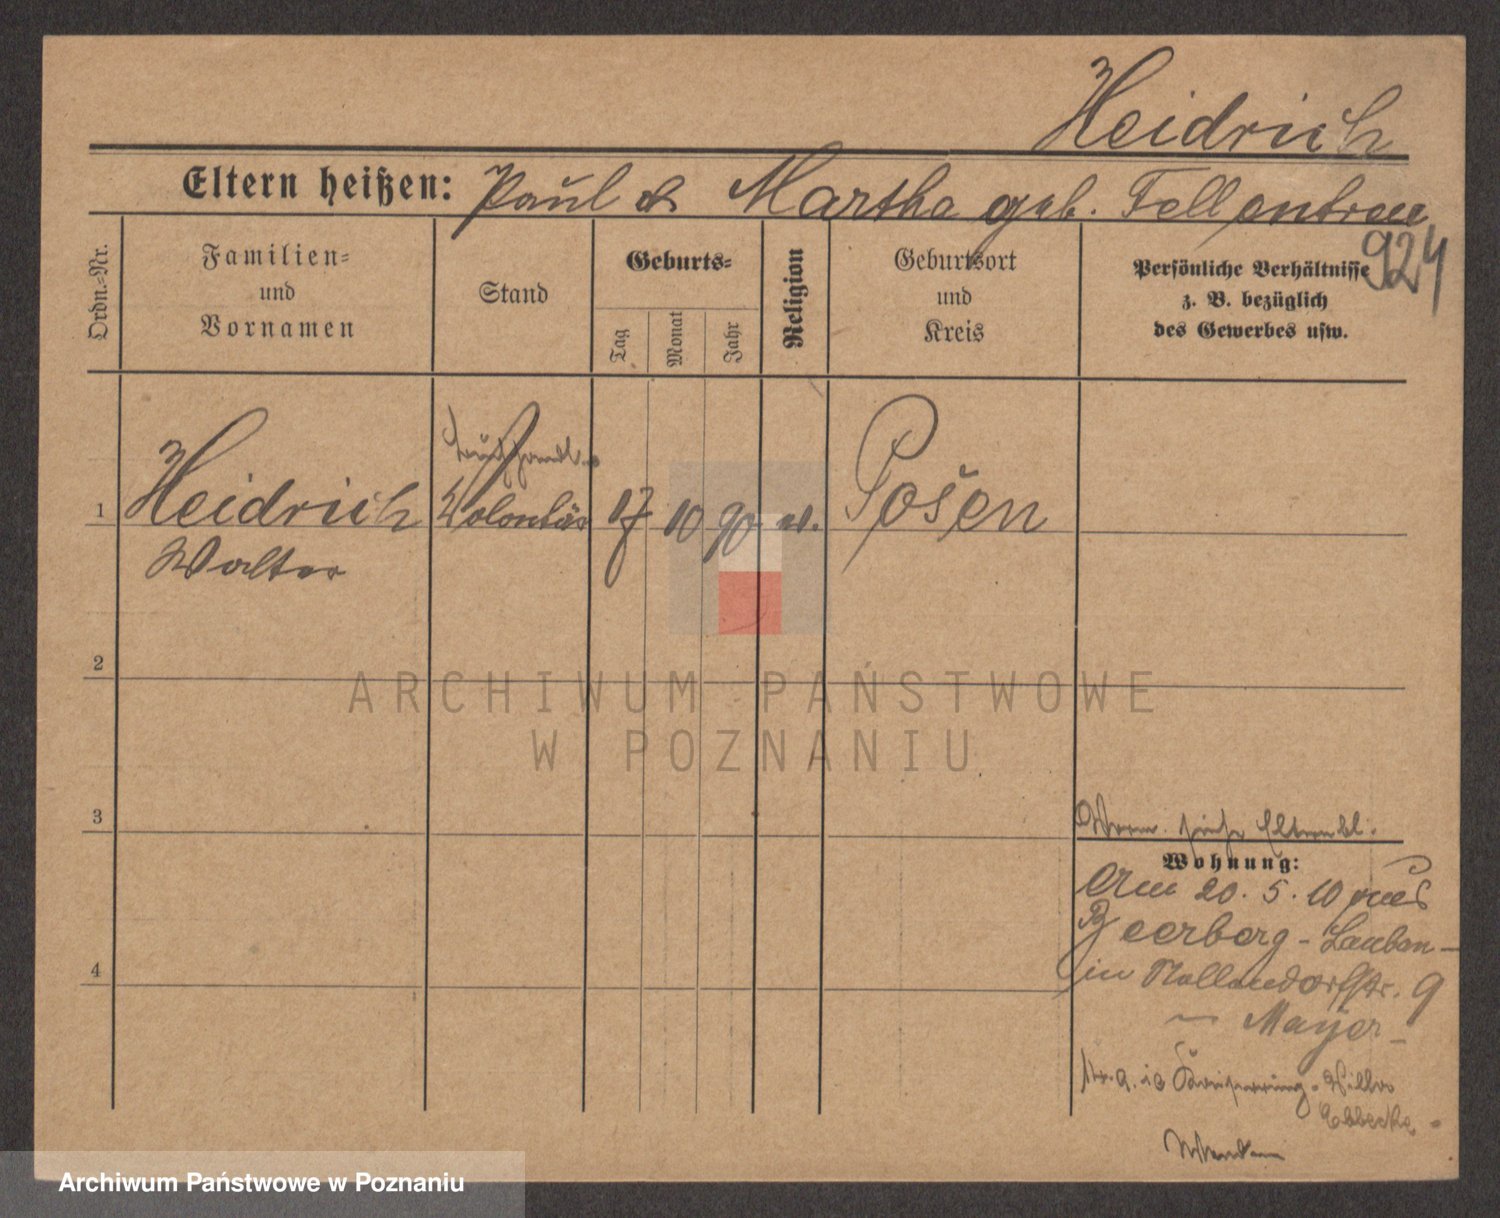 Heidrich
Eltern heißen: Paul & Martha geb. Fellentreu
924
Ordn.-Nr.
Familien-
und
Vornamen
Stand
Geburts-
Tag
Monat
Jahr
Religion
Geburtsort
und
Kreis
Persönliche Verhältnisse
z. B. bezüglich
des Gewerbes usw.
1
Heidrich
Walter
Volontär
17
10
90
ev.
Posen
2
3
4
Wohnung:
Am 20. 5. 10 aus
Beerberg - Lauban -
in Nollendorfstr. 9
- Mayer -